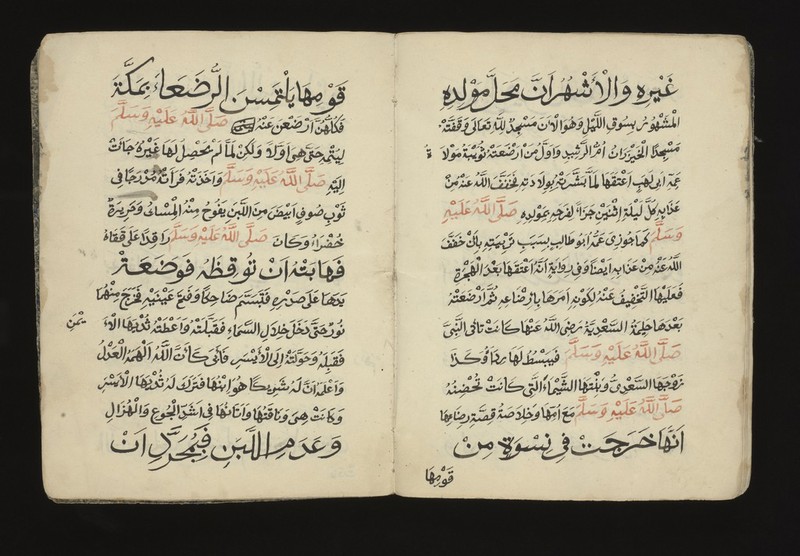 غَيْرِهِ وَالْأَشْهُرُ أَنَّ مَحَلَّ مَوْلِدِهِ
الْمَشْهُورُ بِسُوقِ اللَّيْلِ وَهُوَ الْآنَ مَسْجِدٌ لِلَّهِ تَعَالَى وَقَفَتْهُ
مَسْجِدًا الْخَيْزُرَانُ أُمُّ الرَّشِيدِ وَأَوَّلُ مَنْ أَرْضَعَتْهُ ثُوَيْبَةُ مَوْلَاةُ
عَمِّهِ أَبِي لَهَبٍ أَعْتَقَهَا لَمَّا بَشَّرَتْهُ بِوِلَادَتِهِ فَخَفَّفَ اللَّهُ عَنْهُ مِنْ
عَذَابِهِ كُلَّ لَيْلَةِ إِثْنَيْنِ جَزَاءً لِفَرَحِهِ بِمَوْلِدِهِ صَلَّى اللَّهُ عَلَيْهِ
وَسَلَّمَ كَمَا جُوزِيَ عَمُّهُ أَبُو طَالِبٍ بِسَبَبِ تَرْبِيَتِهِ بِأَنْ خَفَّفَ
اللَّهُ عَنْهُ مِنْ عَذَابِهِ أَيْضًا وَفِي رِوَايَةٍ أَنَّهُ أَعْتَقَهَا بَعْدَ الْهِجْرَةِ
فَعَلَيْهَا التَّخْفِيفُ عَنْهُ لِكَوْنِهِ أَمَرَهَا بِإِرْضَاعِهِ ثُمَّ أَرْضَعَتْهُ
بَعْدَهَا حَلِيمَةُ السَّعْدِيَّةُ رَضِيَ اللَّهُ عَنْهَا كَانَتْ تَأْتِي النَّبِيَّ
صَلَّى اللَّهُ عَلَيْهِ وَسَلَّمَ فَيَبْسُطُ لَهَا رِدَاءً وَكَذَا
زَوْجُهَا السَّعْدِيُّ وَبِنْتُهَا الشَّيْمَاءُ الَّتِي كَانَتْ تَحْضِنُهُ
صَلَّى اللَّهُ عَلَيْهِ وَسَلَّمَ مَعَ أُمِّهَا وَخُلَاصَةُ قِصَّةِ رِضَاعِهَا
أَنَّهَا خَرَجَتْ فِي نِسْوَةٍ مِنْ
قَوْمِهَا
قَوْمِهَا يَلْتَمِسْنَ الرُّضَعَاءَ بِمَكَّةَ
فَكُلُّهُنَّ أَرْضَعْنَ عَنْهُ صَلَّى اللَّهُ عَلَيْهِ وَسَلَّمَ
لِيُتْمِهِ حَتَّى هِيَ أَوَّلًا وَلَكِنْ لَمَّا لَمْ يَحْصُلْ لَهَا غَيْرُهُ جَاءَتْ
إِلَيْهِ صَلَّى اللَّهُ عَلَيْهِ وَسَلَّمَ وَأَخَذَتْهُ فَرَأَتْهُ مُدْرَجًا فِي
ثَوْبِ صُوفٍ أَبْيَضَ مِنَ اللَّبَنِ يَفُوحُ مِنْهُ الْمِسْكُ وَحَرِيرَةٌ
خَضْرَاءُ وَكَانَ صَلَّى اللَّهُ عَلَيْهِ وَسَلَّمَ رَاقِدًا عَلَى قَفَاهُ
فَهَابَتْهُ أَنْ تُوقِظَهُ فَوَضَعَتْ
يَدَهَا عَلَى صَدْرِهِ فَتَبَسَّمَ ضَاحِكًا وَفَتَحَ عَيْنَيْهِ فَخَرَجَ مِنْهُمَا
نُورٌ حَتَّى دَخَلَ خِلَالَ السَّمَاءِ فَقَبَّلَتْهُ وَأَعْطَتْهُ ثَدْيَهَا الْأَ يْمَنِ
فَقَبِلَهُ وَحَوَّلَتْهُ إِلَى الْأَيْسَرِ فَأَبَى كَأَنَّ اللَّهَ أَلْهَمَهُ الْعَدْلَ
وَأَعْلَمَ أَنَّ لَهُ شَرِيكًا هُوَ ابْنُهَا فَتَرَكَ لَهُ ثَدْيَهَا الْأَيْسَرَ
وَكَانَتْ هِيَ وَنَاقَتُهَا وَأَتَانُهَا فِي أَشَدِّ الْجُوعِ وَالْهُزَالِ
وَعَدَمِ اللَّبَنِ فَبِمُجَرَّدِ أَنْ